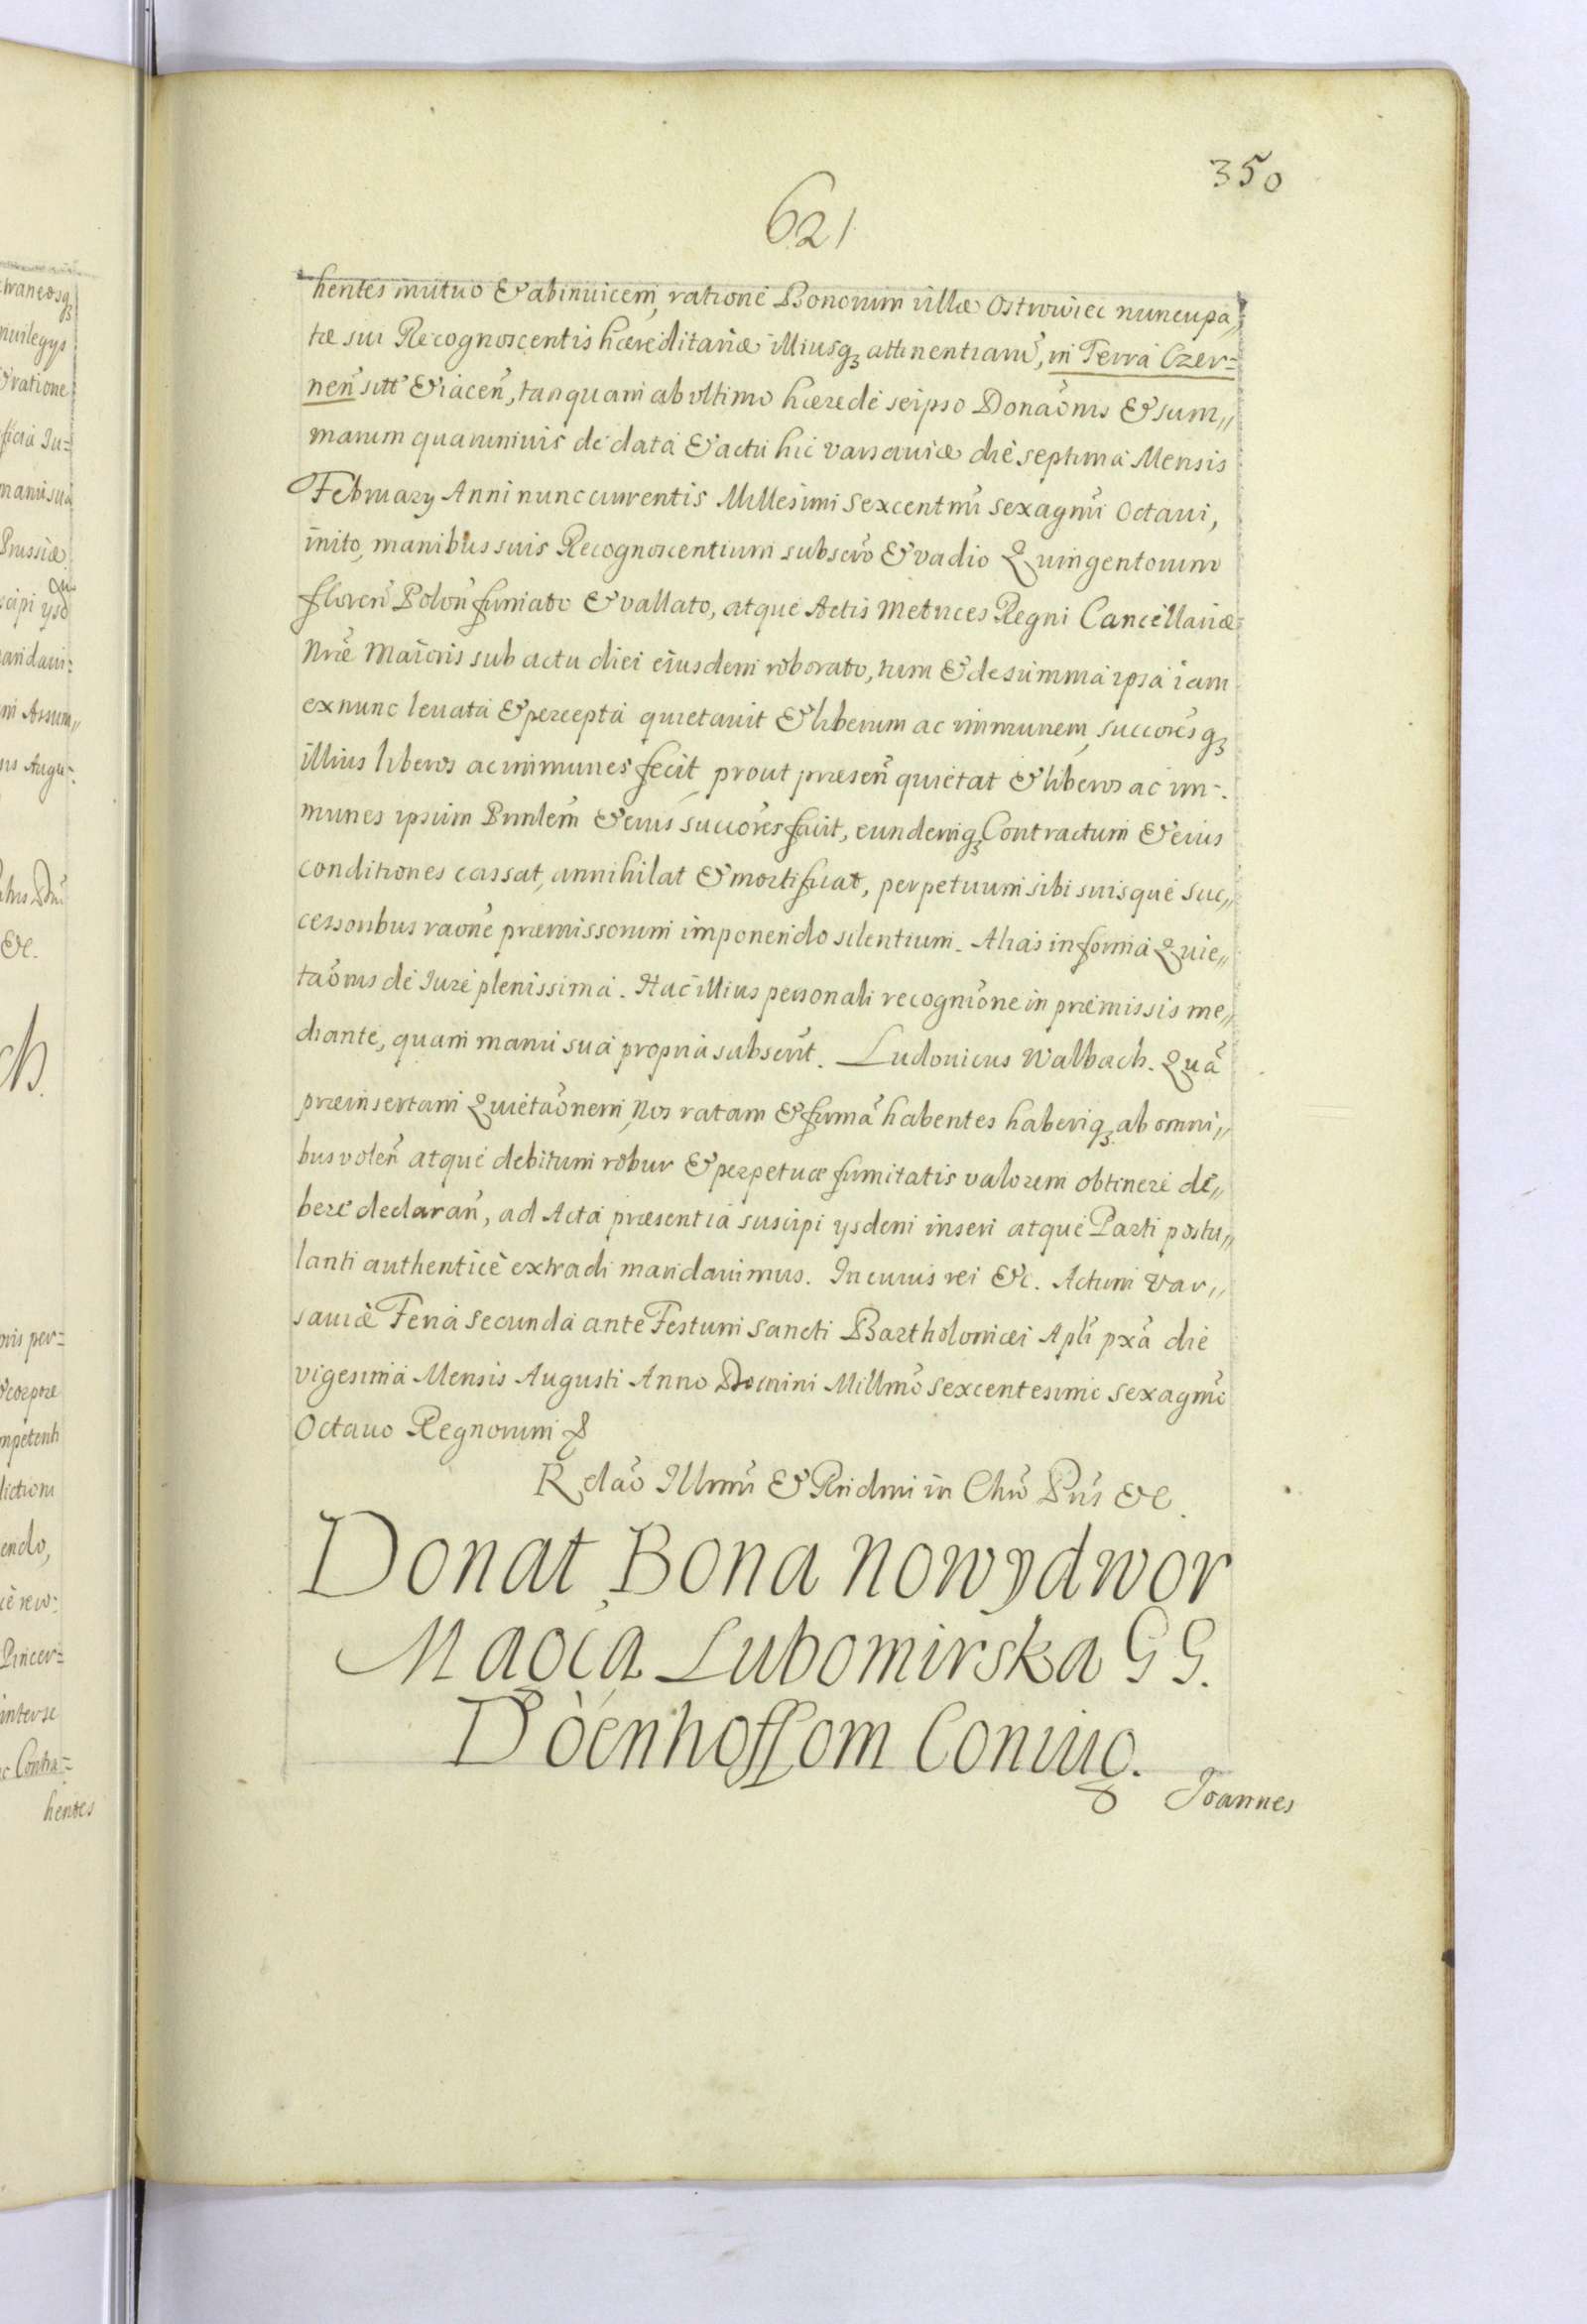 350
621
hentes mutuo & abinuicem, ratione Bonorum villæ Ostrowiec nuncupa„
tæ sui Recognoscentis hæreditariæ illiusq₃ attinentiarũ, in Terra Czer=
nen̄ sitt̃ & iacen̄, tanquam ab vltimo hærede seipso Donãonis & sum„
marum quarumuis de data & actu hic varsauiæ die septima Mensis
February Anni nunc currentis Millesimi sexcentmĩ sexagmĩ Octaui,
inito, manibus suis Recognoscentium subscrõ & vadio Quingentorum
floren̄ Polon̄ firmato & vallato, atque Actis Metrices Regni Cancellariæ
Nr̃æ Maioris sub actu diei eiusdem roborato, tum & de summa ipsa iam
ex nunc leuata & percepta quietauit & liberum ac immunem, succorẽsq₃
illius liberos ac immunes fecit, prout præsen̄ quietat & liberos ac im-
munes ipsum Prinlem̃ & eius succorẽs facit, eundemq₃ Contractum & eius
conditiones cassat, annihilat & mortificat, perpetuum sibi suisque suc„
cessoribus raõne præmissorum imponendo silentium. Alias in forma Quie„
taõnis de Iure plenissima. Hac illius personali recogniõne in præmissis me„
diante, quam manu sua propria subscrit̃. Ludouicus Walbach. Quã
præinsertam Quietaõnem, Nos ratam & firmã habentes haberiq₃ ab omni„
bus volen̄ atque debitum robur & perpetuæ firmitatis valorem obtinere de„
bere declaran̄, ad Acta præsentia suscipi ysdem inseri atque Parti postu„
lanti authenticè extradi mandauimus. In cuius rei &c. Actum Var„
sauiæ Feria secunda ante Festum sancti Bartholomæi Apli̇̃ pxã die
vigesima Mensis Augusti Anno Domini Millmõ sexcentesimo sexagmõ
Octauo Regnorum &
Relaõ Illrmĩ & Rndmi in Chrõ Prĩs &c.
Donat Bona Nowydwor
Maoća Lubomirska GG.
Döenhoffom Coniug.
Joannes